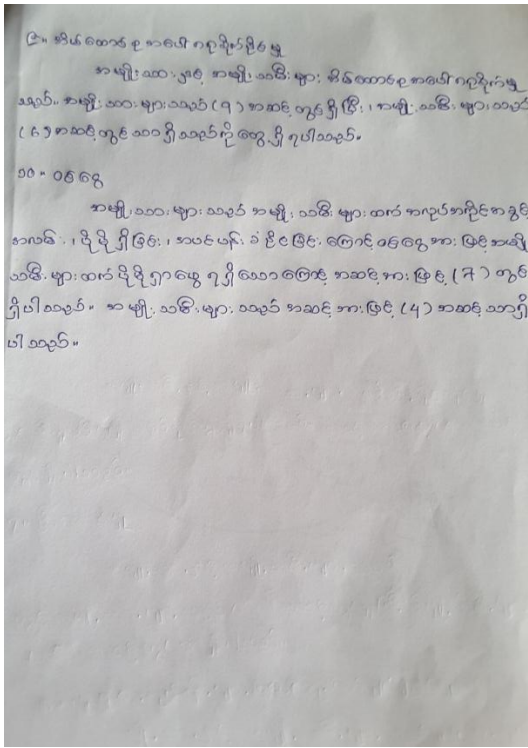 ၉။ အိမ်ထောင်စုအပေါ်ဂရုစိုက်နိုင်မှု
အမျိုးသားနှင့် အမျိုးသမီးများ အိမ်ထောင်စုအပေါ်ဂရုစိုက်မှု
သည် အမျိုးသားများသည် (၇) အဆင့်တွင်ရှိပြီး၊ အမျိုးသမီးများသည်
(၈) အဆင့်တွင်သာရှိသည်ကိုတွေ့ရှိရပါသည်။
၁၀။ ဝင်ငွေ
အမျိုးသားများသည် အမျိုးသမီးများထက် အလုပ်အကိုင်အခွင့်
အလမ်း ပိုမိုရှိခြင်း၊ အပင်ပန်းခံနိုင်ခြင်းကြောင့် ဝင်ငွေအားဖြင့်အမျိုး
သမီးများထက်ပိုမိုရှာဖွေရရှိသောကြောင့် အဆင့်အားဖြင့် (7) တွင်
ရှိပါသည်။ အမျိုးသမီးများသည် အဆင့်အားဖြင့် (၄) အဆင့်သာရှိ
ပါသည်။